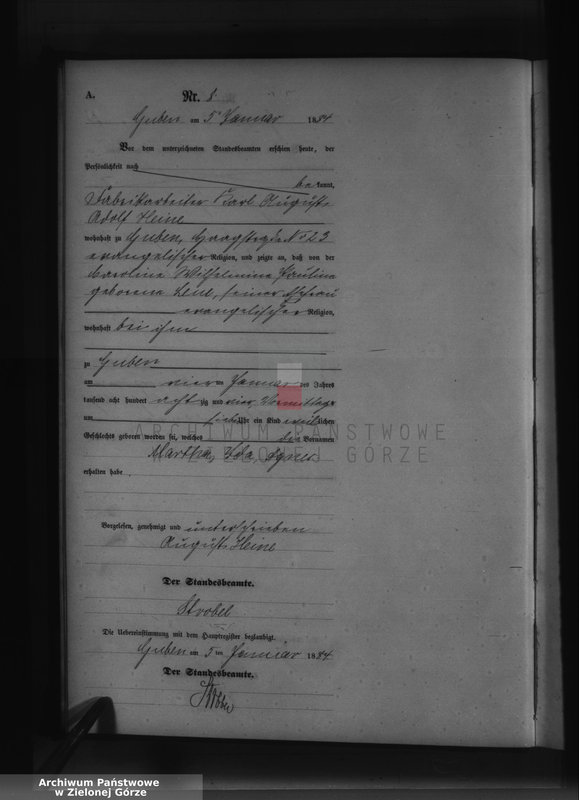 A. Nr. 8
Guben am 5 Januar 1884
Vor dem unterzeichneten Standesbeamten erschien heute, der
Persönlichkeit nach
bekannt,
Fabrikarbeiter Karl August
Adolf Heine
wohnhaft zu Guben, No 23
evangelischer Religion, und zeigte an, daß von der
Caroline Wilhelmine Pauline
geborene seiner Ehefrau
evangelischer Religion,
wohnhaft bei ihm
zu Guben
am vierten Januar des Jahres
tausend acht hundert achtzig und vier Vormittags
um Uhr ein Kind weiblichen
Geschlechts geboren worden sei, welches die Vornamen
Martha, Ida, Agnes
erhalten habe
Vorgelesen, genehmigt und unterschrieben
August Heine
Der Standesbeamte.
Strobel
Die Uebereinstimmung mit dem Hauptregister beglaubigt.
Guben am 5 ten Januar 1884
Der Standesbeamte.
ARCHIWUM PAŃSTWOWE
W ZIELONEJ GÓRZE
Archiwum Państwowe
w Zielonej Górze